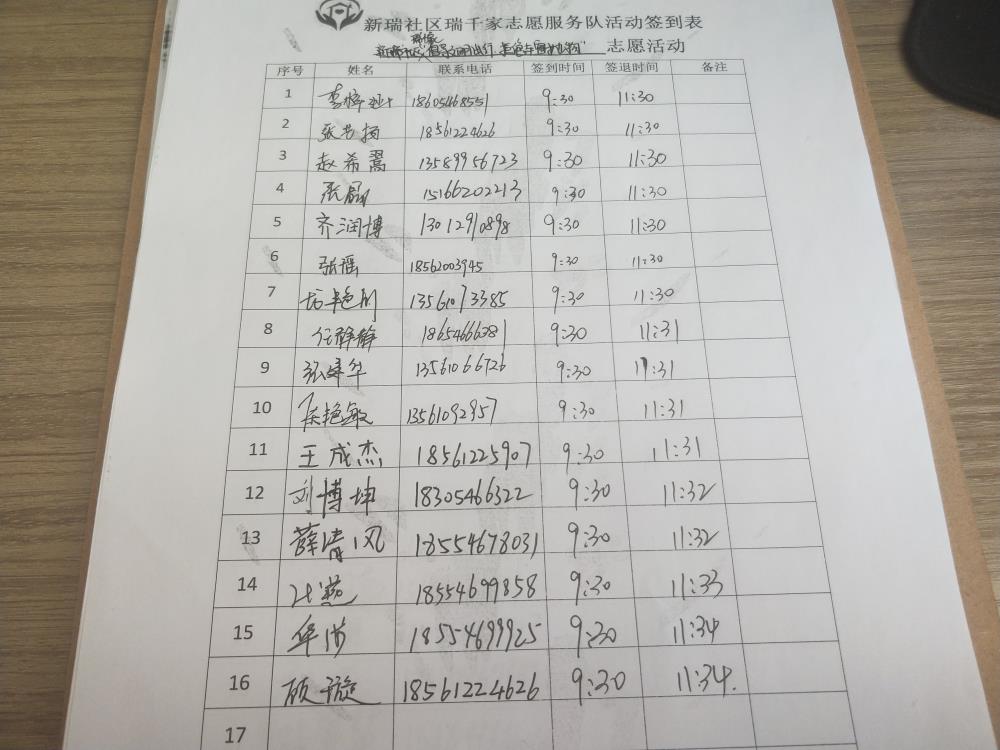 新瑞社区瑞千家志愿服务队活动签到表
志愿活动
序号 姓名 联系电话 签到时间 签退时间 备注
1 18605468551 9:30 11:30
2 张艺扬 18561224626 9:30 11:30
3 赵希翯 13589956723 9:30 11:30
4 15166202213 9:30 11:30
5 齐润博 13012910898 9:30 11:30
6 张瑶 18562003945 9:30 11:30
7 13561073385 9:30 11:30
8 任静静 18654666381 9:30 11:31
9 13561066726 9:30 11:31
10 13561092957 9:30 11:31
11 王成杰 18561225907 9:30 11:31
12 刘博坤 18305466322 9:30 11:32
13 薛清风 18554678031 9:30 11:32
14 18554699858 9:30 11:33
15 18554699925 9:30 11:34
16 顾璇 18561224626 9:30 11:34.
17